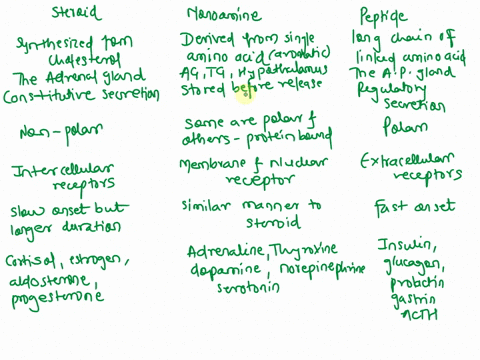 Steroid
Synthesized from
cholesterol
The Adrenal gland
Constitutive secretion
Non-polar
Intercellular
receptors
slow onset but
longer duration
Cortisol, estrogen,
aldosterone,
progesterone
Monoamine
Derived from single
amino acid (aromatic)
AG, TG, Hypothalamus
Stored before release
Some are polar &
others - protein bound
Membrane & Nuclear
receptor
similar manner to
steroid
Adrenaline, Thyroxine
dopamine, norepinephrine
serotonin
Peptide
long chain of
linked amino acid
The A.P. gland
Regulatory
secretion
Polar
Extracellular
receptors
Fast onset
Insulin,
glucagon,
prolactin
gastrin
ACTH